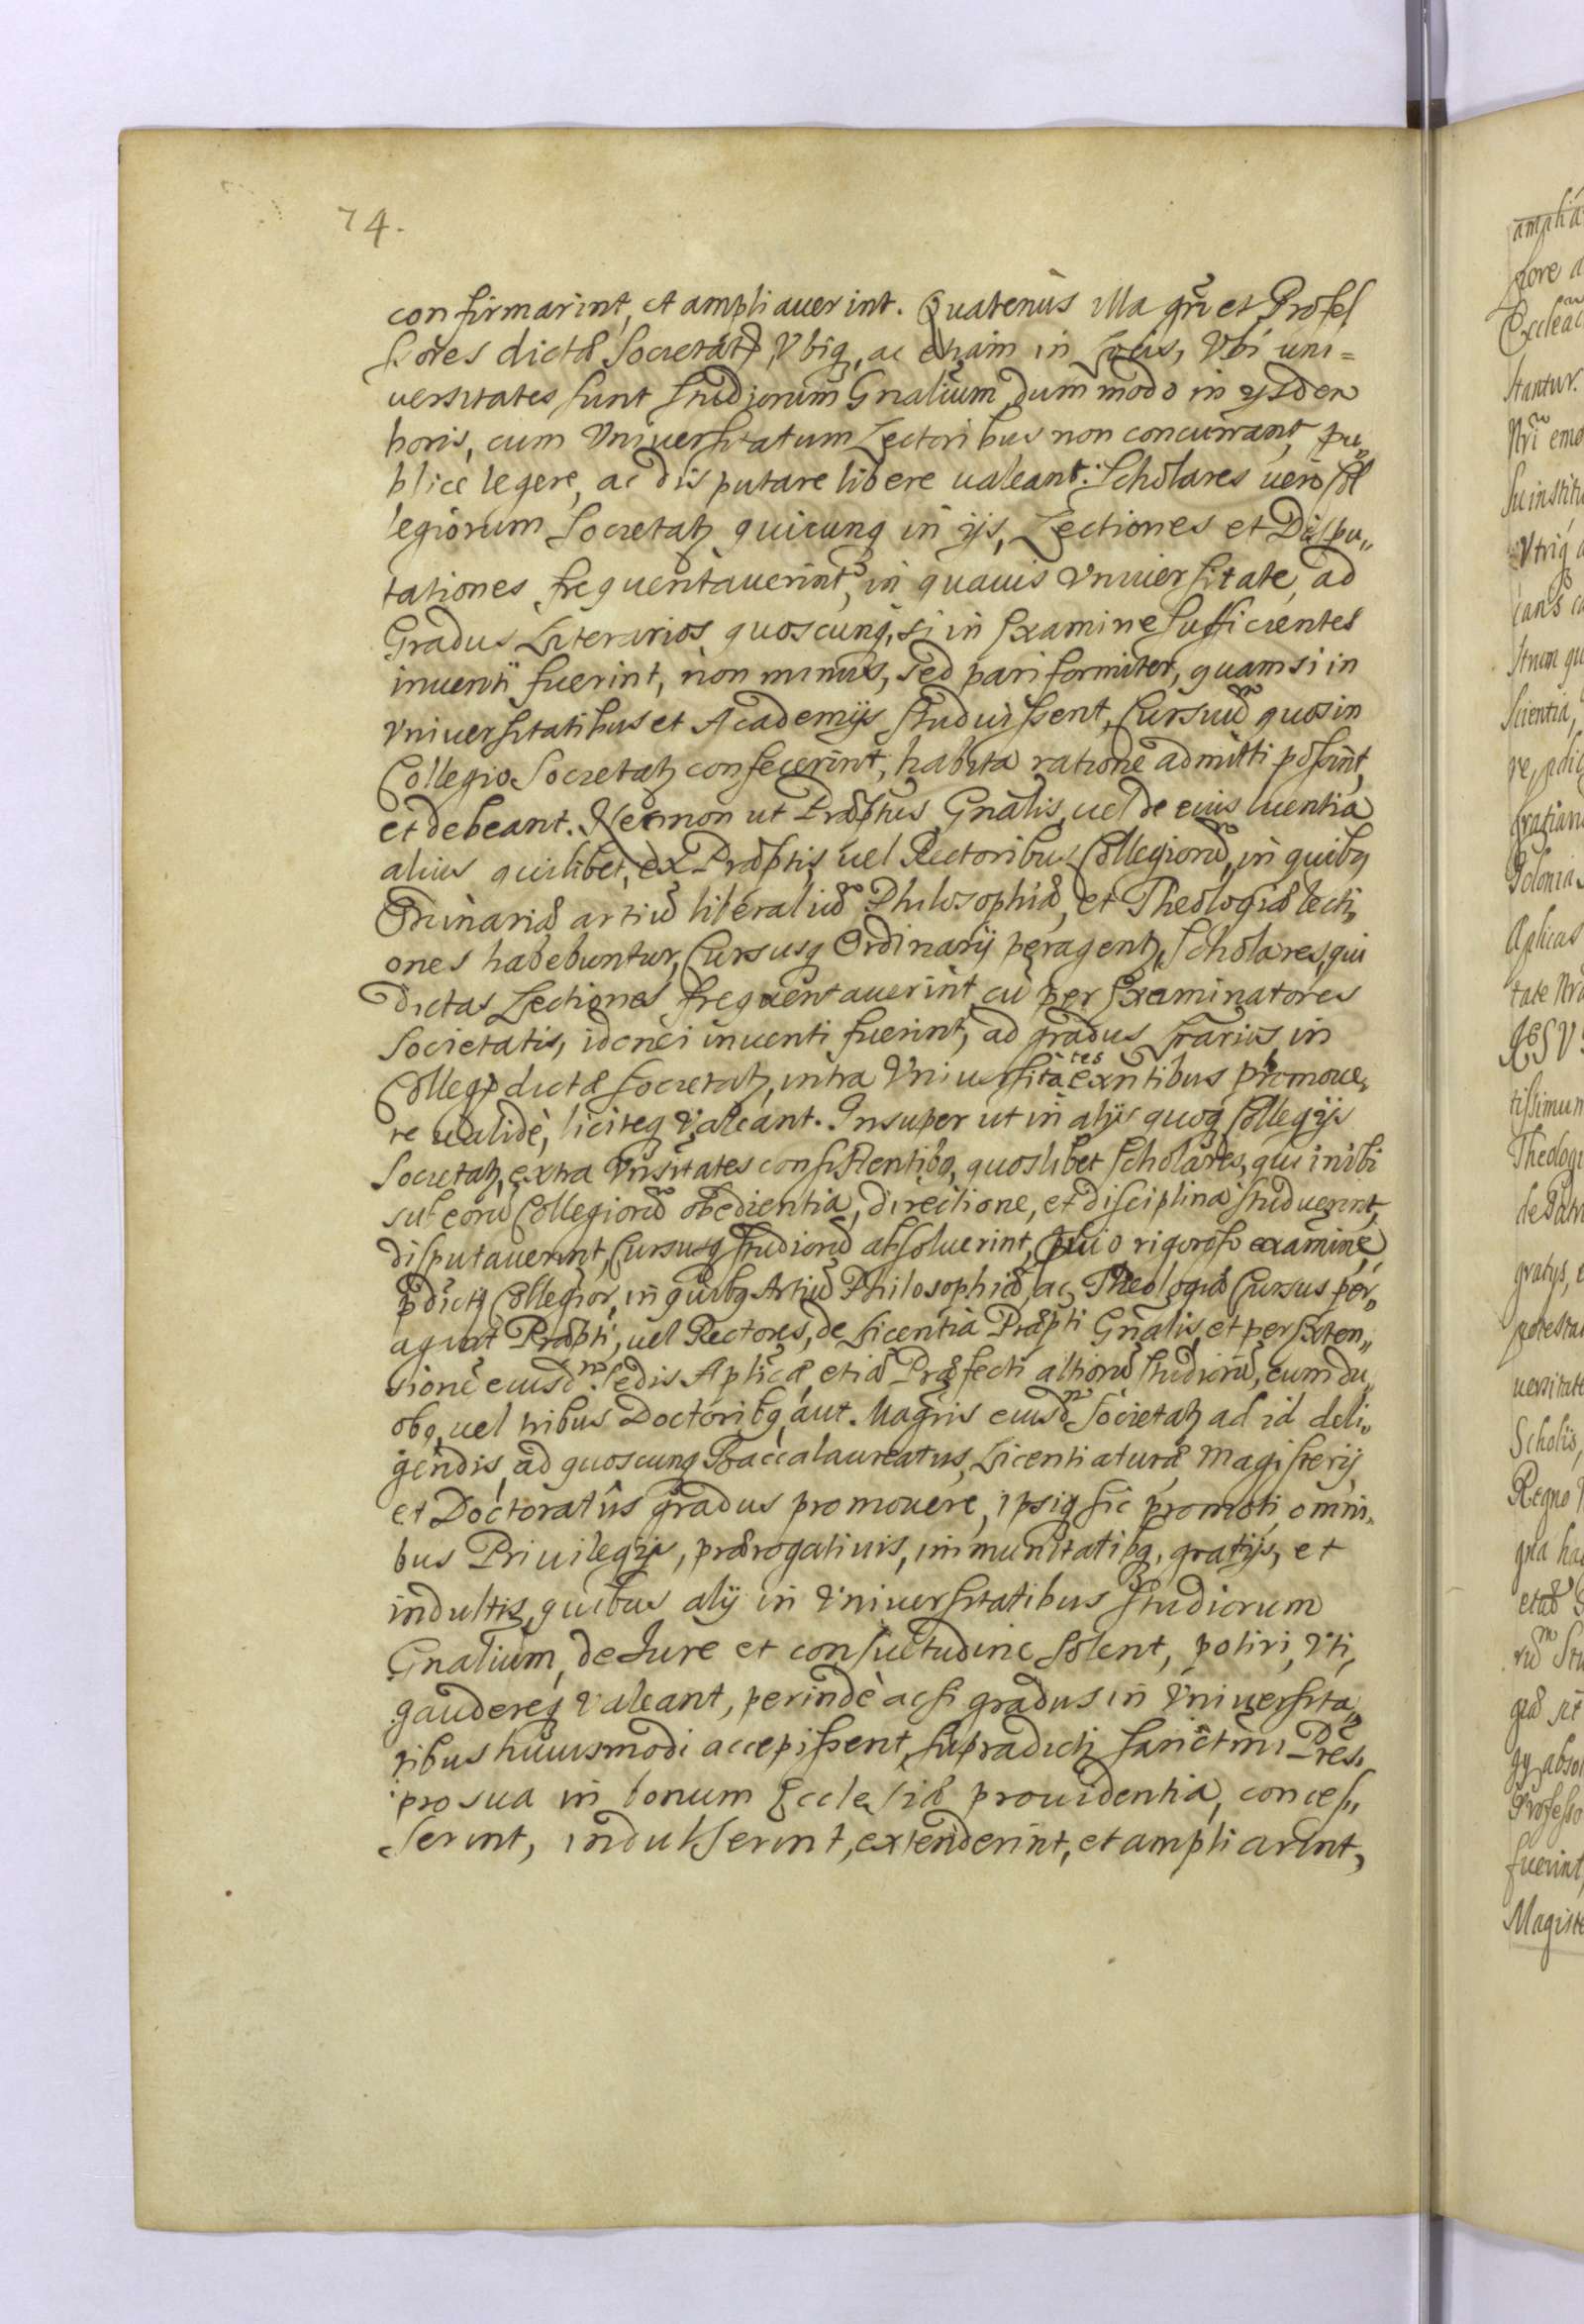 74.
confirmarint, et ampliauerint. Quatenùs illa gñr et Profes
sores dictæ Societatꝭ, Vbiq, ac etiam in Locis, Vbi uni=
uersitates sunt Studiorum Gñalium, dummodo in ijsdem
horis, cum Vniuersitatum Lectoribus non concurrant, pu„
blicè legere, ac disputare liberè ualeant. Scholares uerò Col
legiorum Societatꝭ quicunq in ijs, Lectiones et Dispu„
tationes frequentauerint, in quauis Vniuersitate, ad
Gradus Literarios quoscunq, si in Examine sufficientes
inuenti fuerint, non minus, sed pariformiter, quam si in
Vniuersitatibus et Academijs studuissent, Cursuũ quos in
Collegio Societatꝭ confecerint, habita ratione admitti possint,
et debeant. Necnon ut Præptus Gñalis, uel de eius licentia
alius quilibet, ex Præptis, uel Rectoribus Collegiorũ, in quibq
Ordinariæ artiũ liberaliũ Philosophiæ, et Theologiæ lecti„
ones habebuntur, Cursusq Ordinarij peragentꝭ, Scholares, qui
dictas Lectiones frequentauerint, cũ per Examinatores
Societatis, idonei inuenti fuerint, ad gradus Lrarios in
Collegꝭ dictæ Societatꝭ, intra Vniuersitates exñtibus promoue„
re ualidè, licitèq Valeant. Insuper ut in alijs quoq Collegijs
Societatꝭ, extra Vñsitates consistentibq, quoslibet Scholares, qui inibi
sub eorũ Collegiorũ obedientia, directione, et disciplina studuerint,
disputauerint, Cursusq studiorũ absoluerint, prũio rigoroso examine,
p̃dictꝭ Collegior, in quibq Artiũ Philosophiæ, ac Theologiæ Cursus per„
agunt Præpti, uel Rectores, de Licentia Præpti Gñalis, et per Exten„
sionẽ eiusdm Sedis Aplicæ, etiã Præfecti altiorũ studiorũ, cum du„
obq, uel tribus Doctoribq, aut Magris eiusdm Societatꝭ ad id deli„
gendis, ad quoscunq Baccalaureatus, Licentiaturæ Magisterij,
et Doctoratûs gradus promouere, ipsiq sic promoti, omni„
bus Priuilegijs, prærogatiuis, immunitatibq, gratijs, et
indultis, quibus alij in Vniuersitatibus studiorum
Gñalium, de Iure et consuetudine solent, potiri, Vti,
gaudereq Valeant, perindè ac si gradus in Vniuersita„
tibus huiusmodi accepissent, supradictꝭ Sanctmi Pres,
pro sua in bonum Ecclesiæ prouidentia, conces„
serint, indulserint, extenderint, et ampliarint,